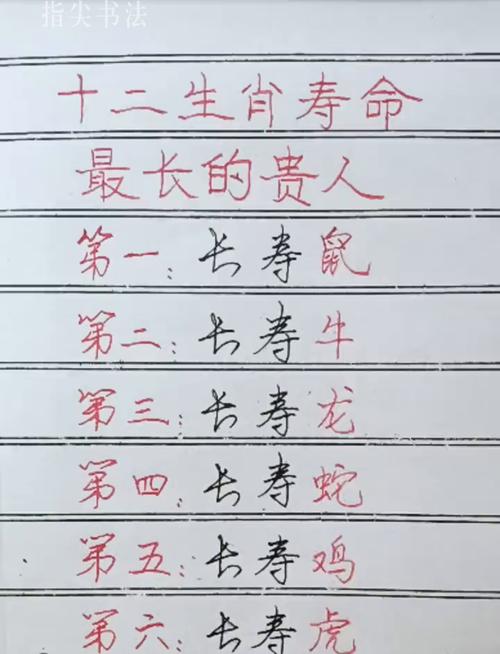 指尖书法
十二生肖寿命
最长的贵人
第一：长寿鼠
第二：长寿牛
第三：长寿龙
第四：长寿蛇
第五：长寿鸡
第六：长寿虎